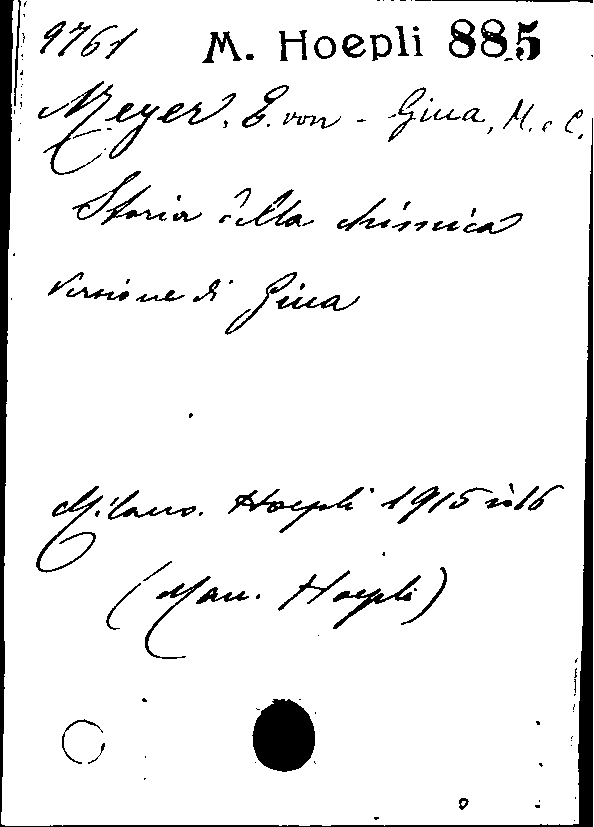 9761 M. Hoepli 885
Meyer, E. von - Giua, M. e C.
Storia della chimica
Versione di Giua
Milano. Hoepli 1915 in 16
(Man. Hoepli)